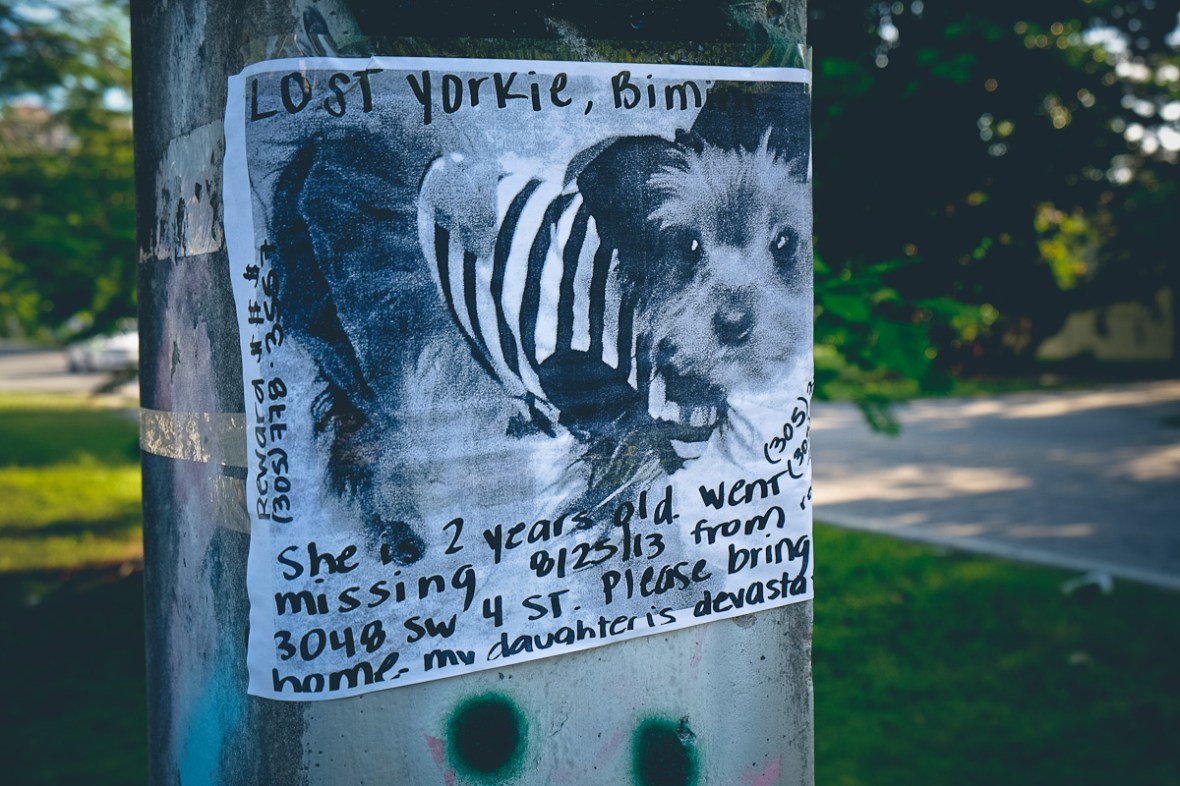 LOST Yorkie, Bimini
Reward $ $ $
(305)778-3557
(305)
(305)
She is 2 years old. went
missing 8/25/13 from
3048 SW 4 ST. Please bring
home. my daughter is